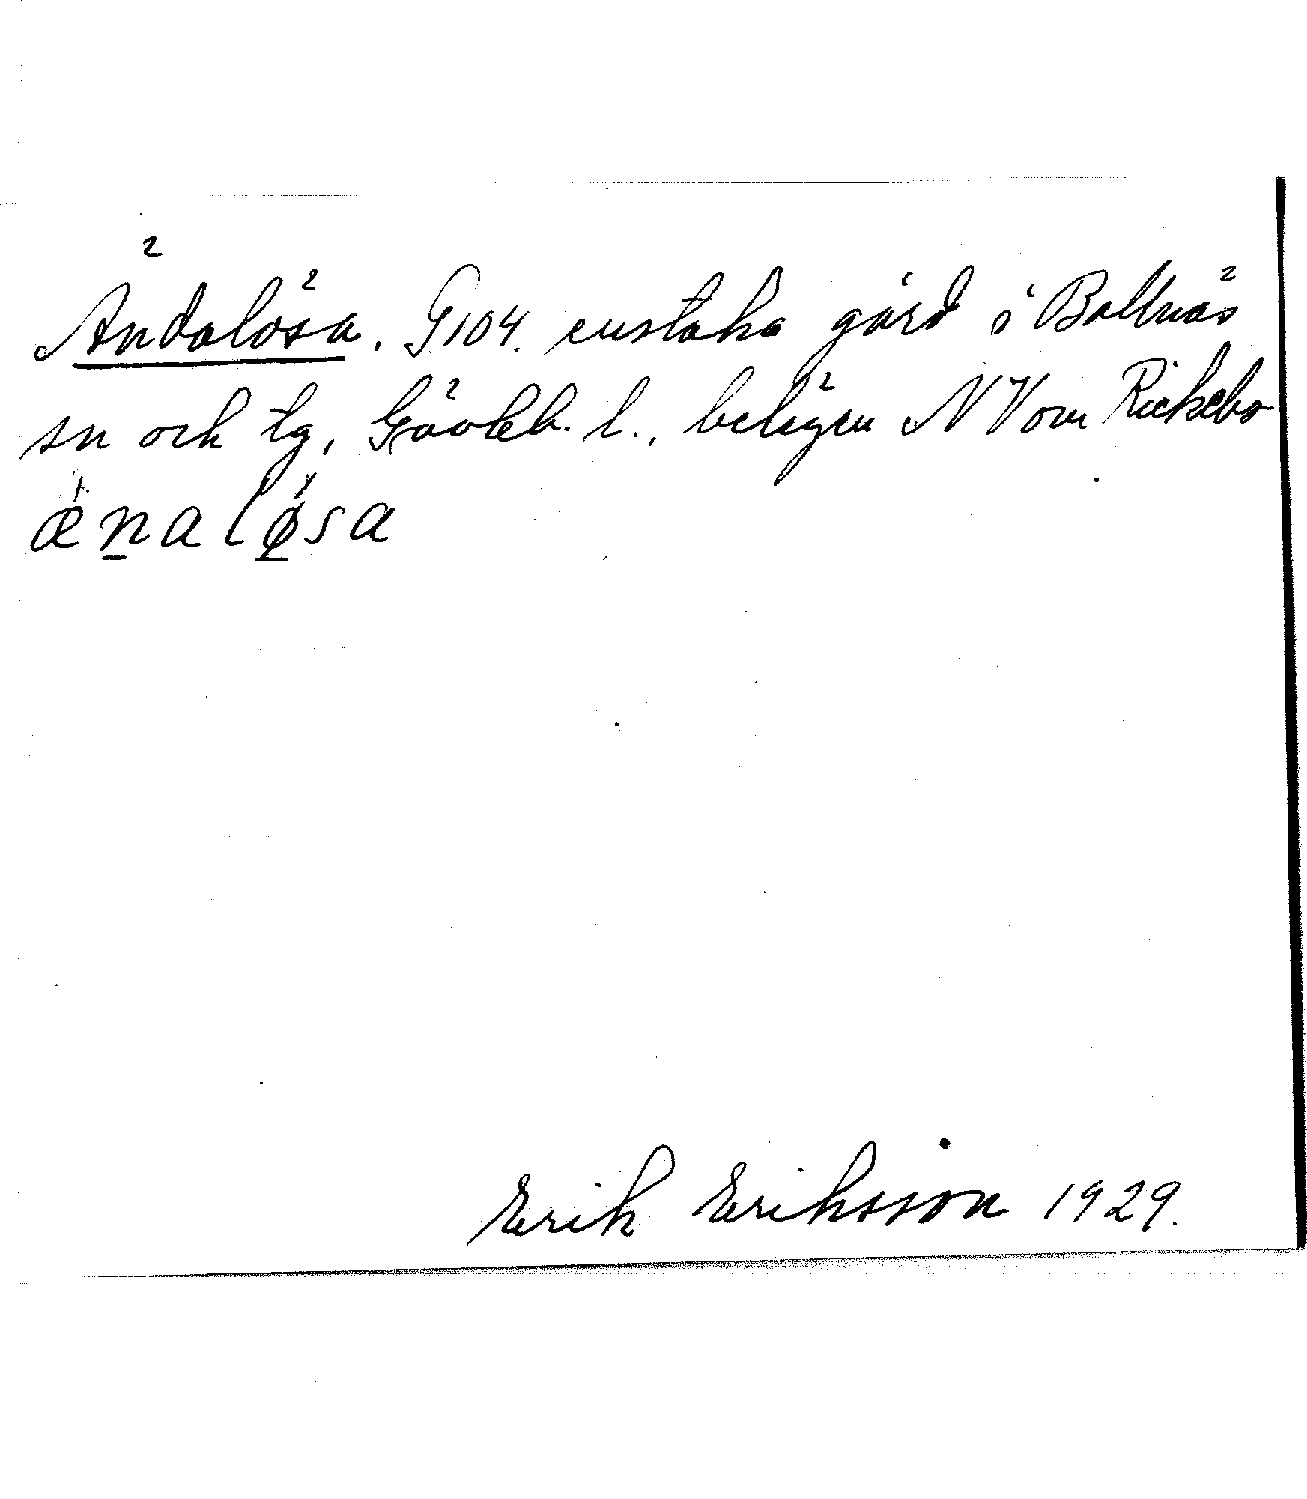 Ändalösa. G104. enstaka gård i Bollnäs
sn och tg, Gävleb. l., belägen NV om Rickebo
æ̀n̲alø̲̀sa
Erik Eriksson 1929.